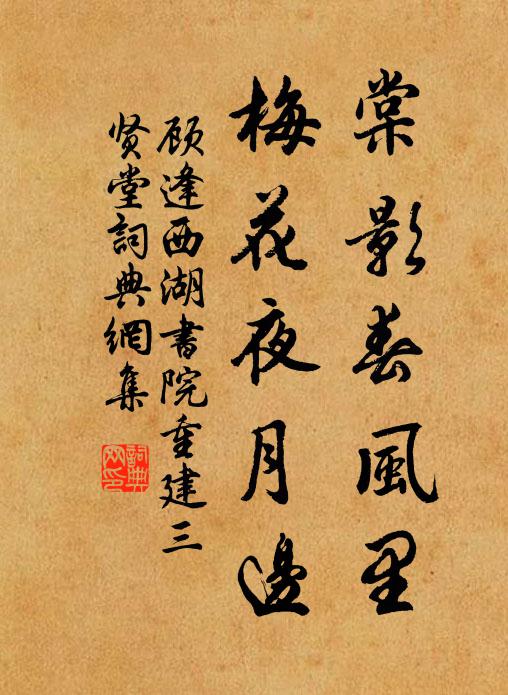 棠影春風里
梅花夜月邊
顾逢西湖書院重建三
贤堂詞典網集
詞典网印